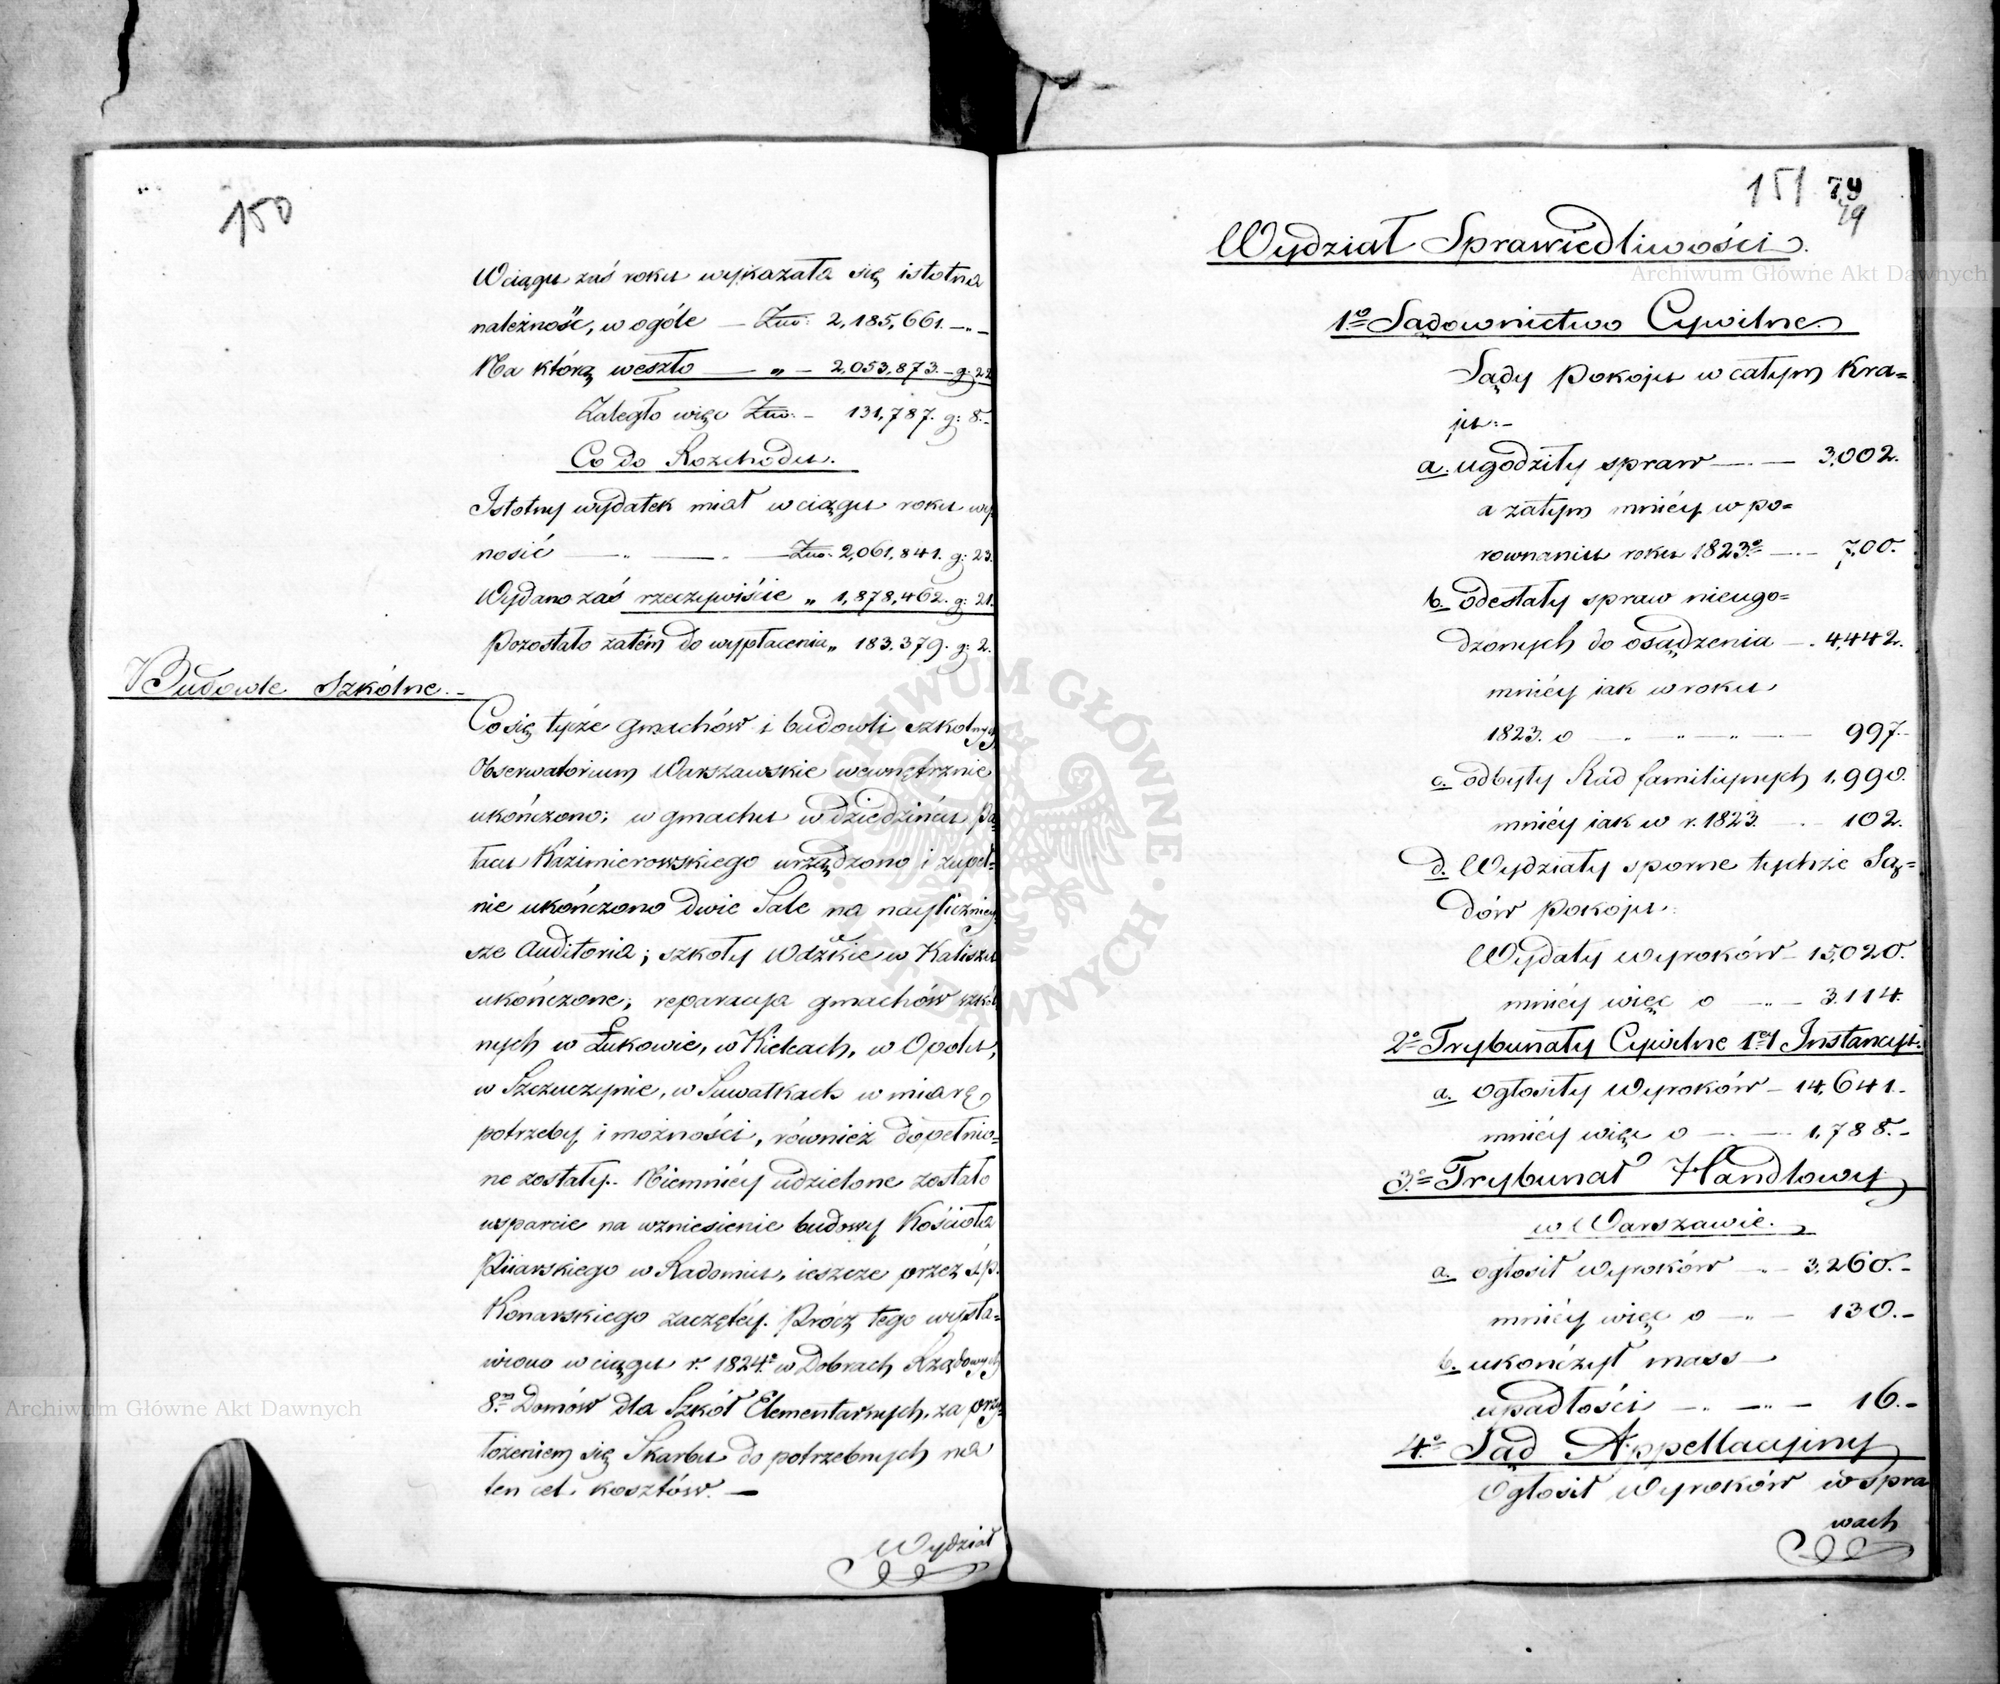 150
W ciągu zaś roku wykazała się istotna
należność, w ogóle — Złw: 2,185,661. —„—
Na którą weszło — „ — 2,053,873. — g: 22
Zaległo więc Złw: — 131,787. g: 8. —
Co do Rozchodu.
Istotny wydatek miał w ciągu roku wy
nosić — „ — . — Złw: 2,061,841. g: 23.
Wydano zaś rzeczywiście „ 1,878,462. g: 21.
Pozostało zatém do wypłacenia „ 183,379. g: 2.
Budowle Szkólne. —
Co się tycze gmachów i budowli szkolnych
Obserwatorium Warszawskie wewnętrznie
ukończono; w gmachu w dziedzińcu Pa-
łacu Kazimierowskiego urządzono i zupeł=
nie ukończono dwie Sale na nayliczniey
sze Auditoria; szkoły Wdzkie w Kaliszu
ukończone; reparacya gmachów szkól
nych w Łukowie, w Kielcach, w Opolu,
w Szczuczynie, w Suwałkach w miarę
potrzeby i możności, również dopełnio=
ne zostały. Niemniéy udzielone zostało
wsparcie na wzniesienie budowy Kościoła
Piiarskiego w Radomiu, ieszcze przez ś. p.
Konarskiego zaczętéy. Prócz tego wysta=
wiono w ciągu r. 1824o w Dobrach Rządowych
8m Domów dla Szkół Elementarnych, za przy
łożeniem się Skarbu do potrzebnych na
ten cel kosztów. —
Wydział
151 79
79
Wydział Sprawiedliwości.
1o Sądownictwo Cywilne
Sądy Pokoju w całym Kra=
ju: —
a. ugodziły spraw — . — 3,002.
a zatym mniéy w po=
rownaniu roku 1823o — . — 7,00.
b. odesłały spraw nieugo=
dzonych do osądzenia — . 4,442.
mniéy iak w roku
1823. o — „ — „ — „ — 997. —
c. odbyły Rad familiynych 1,990.
mniéy iak w r. 1823. — . — 102.
d. Wydziały sporne tychże Są=
dów Pokoju:
Wydały Wyroków — 15,020.
mniéy więc o — „ — 3.114.
2o Trybunały Cywilne 1éy Instancyi.
a. ogłosiły Wyroków — 14,641. —
mniéy więc o — . — 1,788. —
3o Trybunał Handlowy
w Warszawie.
a. ogłosił Wyroków — „ — 3,260. —
mniéy więc o — „ — 130. —
b. ukończył mass —
upadłości — „ — „ — 16. —
4o Sąd Appellacyiny
Ogłosił Wyroków w spra
wach
Archiwum Główne Akt Dawnych
Archiwum Główne Akt Dawnych
ARCHIWUM GŁÓWNE AKT DAWNYCH